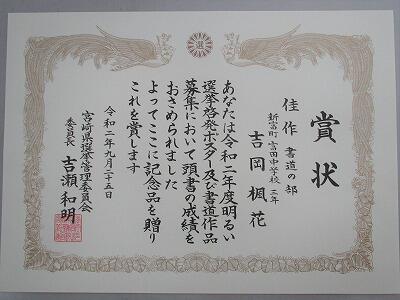 選
賞状
佳作 書道の部
新富町 富田中学校 三年
吉岡楓花
あなたは令和二年度明るい
選挙啓発ポスター及び書道作品
募集において頭書の成績を
おさめられました
よってここに記念品を贈り
これを賞します
令和二年九月二十五日
宮崎県選挙管理委員会
委員長 吉瀬和明